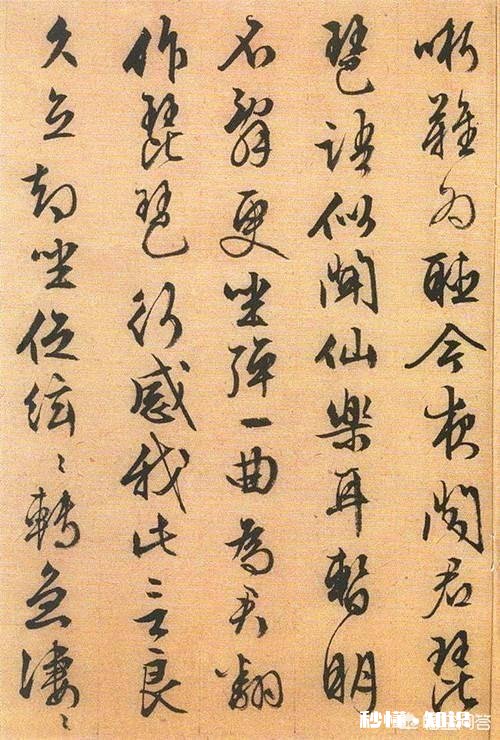 哳難為聽今夜聞君琵
琶語似聞仙樂耳暫明
不辭更坐彈一曲為君翻
作琵琶行感我此言良
久立却坐促絃〻轉急凄〻
秒懂·知识
问答